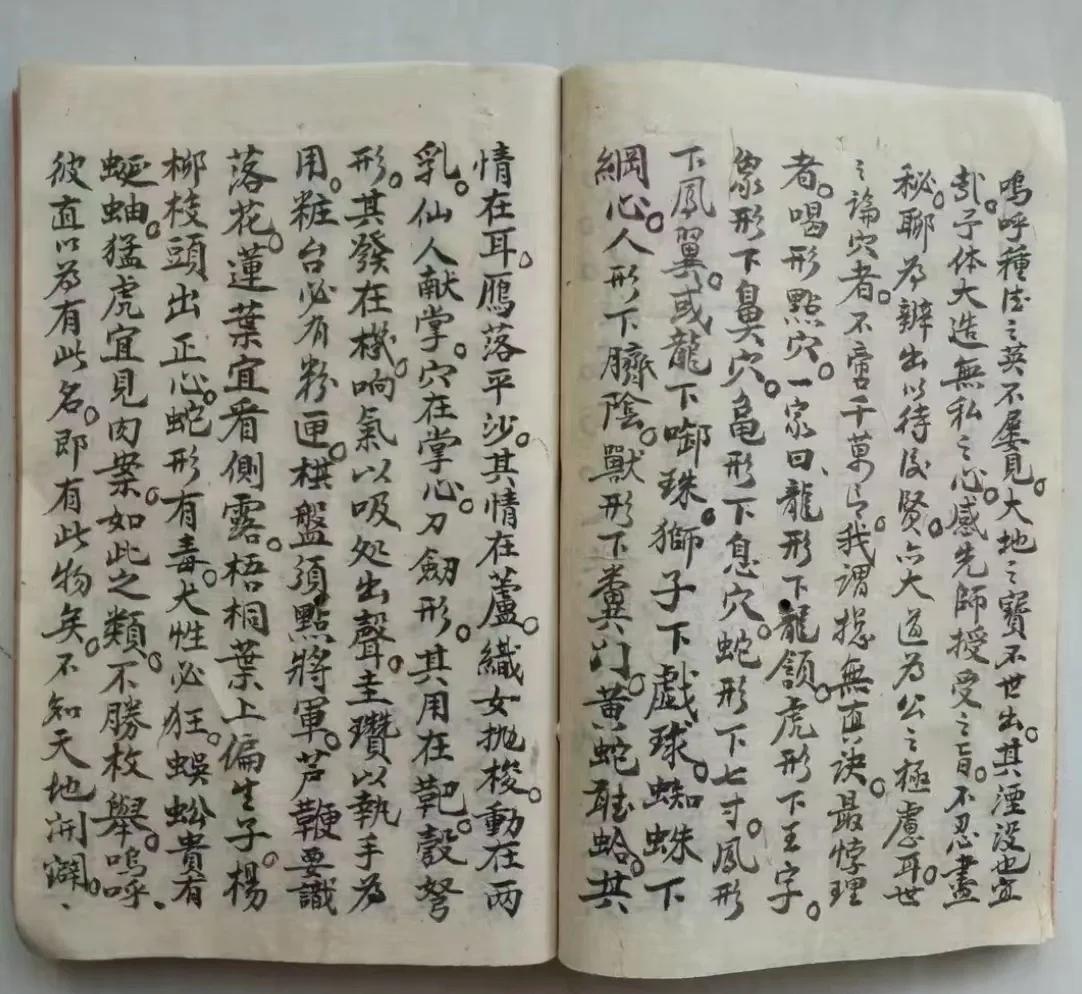 嗚呼種法之英不屡見。大地之寶不世出。其湮没也宜
哉。予体大造無私之心。感先師授受之旨。不忍盡
秘。聊為辨出以待後賢。亦大道為公之極慮耳。世
之論穴者。不啻千萬言。我謂揔無真訣。最悖理
者。喝形點穴。一家曰、龍形下龍頷。虎形下王字。
象形下鼻穴。黽形下息穴。蛇形下七寸。鳳形
下鳳翼。或龍下啣珠。獅子下戲球。蜘蛛下
網心。人形下臍陰。獸形下糞门。黄蛇聴蛤。其
情在耳。鴈落平沙。其情在蘆。織女抛梭。動在两
乳。仙人献掌。穴在掌心。刀劒形。其用在靶。彀弩
形。其發在機。响氣以吸处出聲。圭瓚以執手為
用。粧台必有粉匣。棋盤須點將軍。芦鞭要識
落花。蓮葉宜看側露。梧桐葉上偏生子。楊
柳枝頭出正心。蛇形有毒。犬性必狂。蜈蚣貴有
蜒蚰。猛虎宜見肉案。如此之類。不勝枚舉。嗚呼。
彼直以為有此名。即有此物矣。不知天地開闢。、